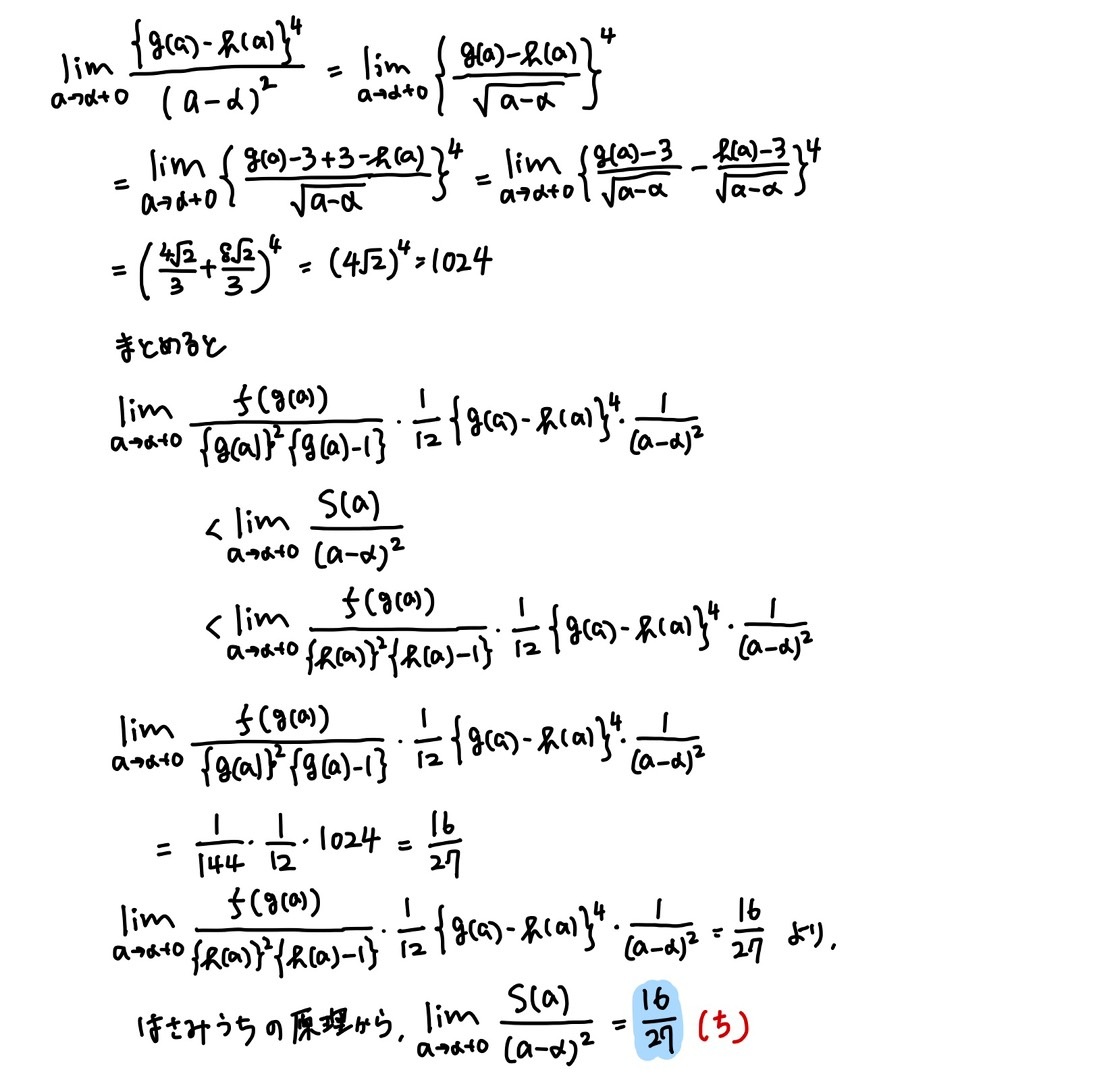 lim_{a→α+0} {g(a)-h(a)}^4 / (a-α)^2 = lim_{a→α+0} { (g(a)-h(a)) / √(a-α) }^4
= lim_{a→α+0} { (g(a)-3+3-h(a)) / √(a-α) }^4 = lim_{a→α+0} { (g(a)-3)/√(a-α) - (h(a)-3)/√(a-α) }^4
= (4√2/3 + 8√2/3)^4 = (4√2)^4 = 1024
まとめると
lim_{a→α+0} f(g(a)) / ({g(a)}^2{g(a)-1}) · 1/12 {g(a)-h(a)}^4 · 1/(a-α)^2
< lim_{a→α+0} S(a)/(a-α)^2
< lim_{a→α+0} f(g(a)) / ({h(a)}^2{h(a)-1}) · 1/12 {g(a)-h(a)}^4 · 1/(a-α)^2
lim_{a→α+0} f(g(a)) / ({g(a)}^2{g(a)-1}) · 1/12 {g(a)-h(a)}^4 · 1/(a-α)^2
= 1/144 · 1/12 · 1024 = 16/27
lim_{a→α+0} f(g(a)) / ({h(a)}^2{h(a)-1}) · 1/12 {g(a)-h(a)}^4 · 1/(a-α)^2 = 16/27 より,
はさみうちの原理から, lim_{a→α+0} S(a)/(a-α)^2 = 16/27 (ち)